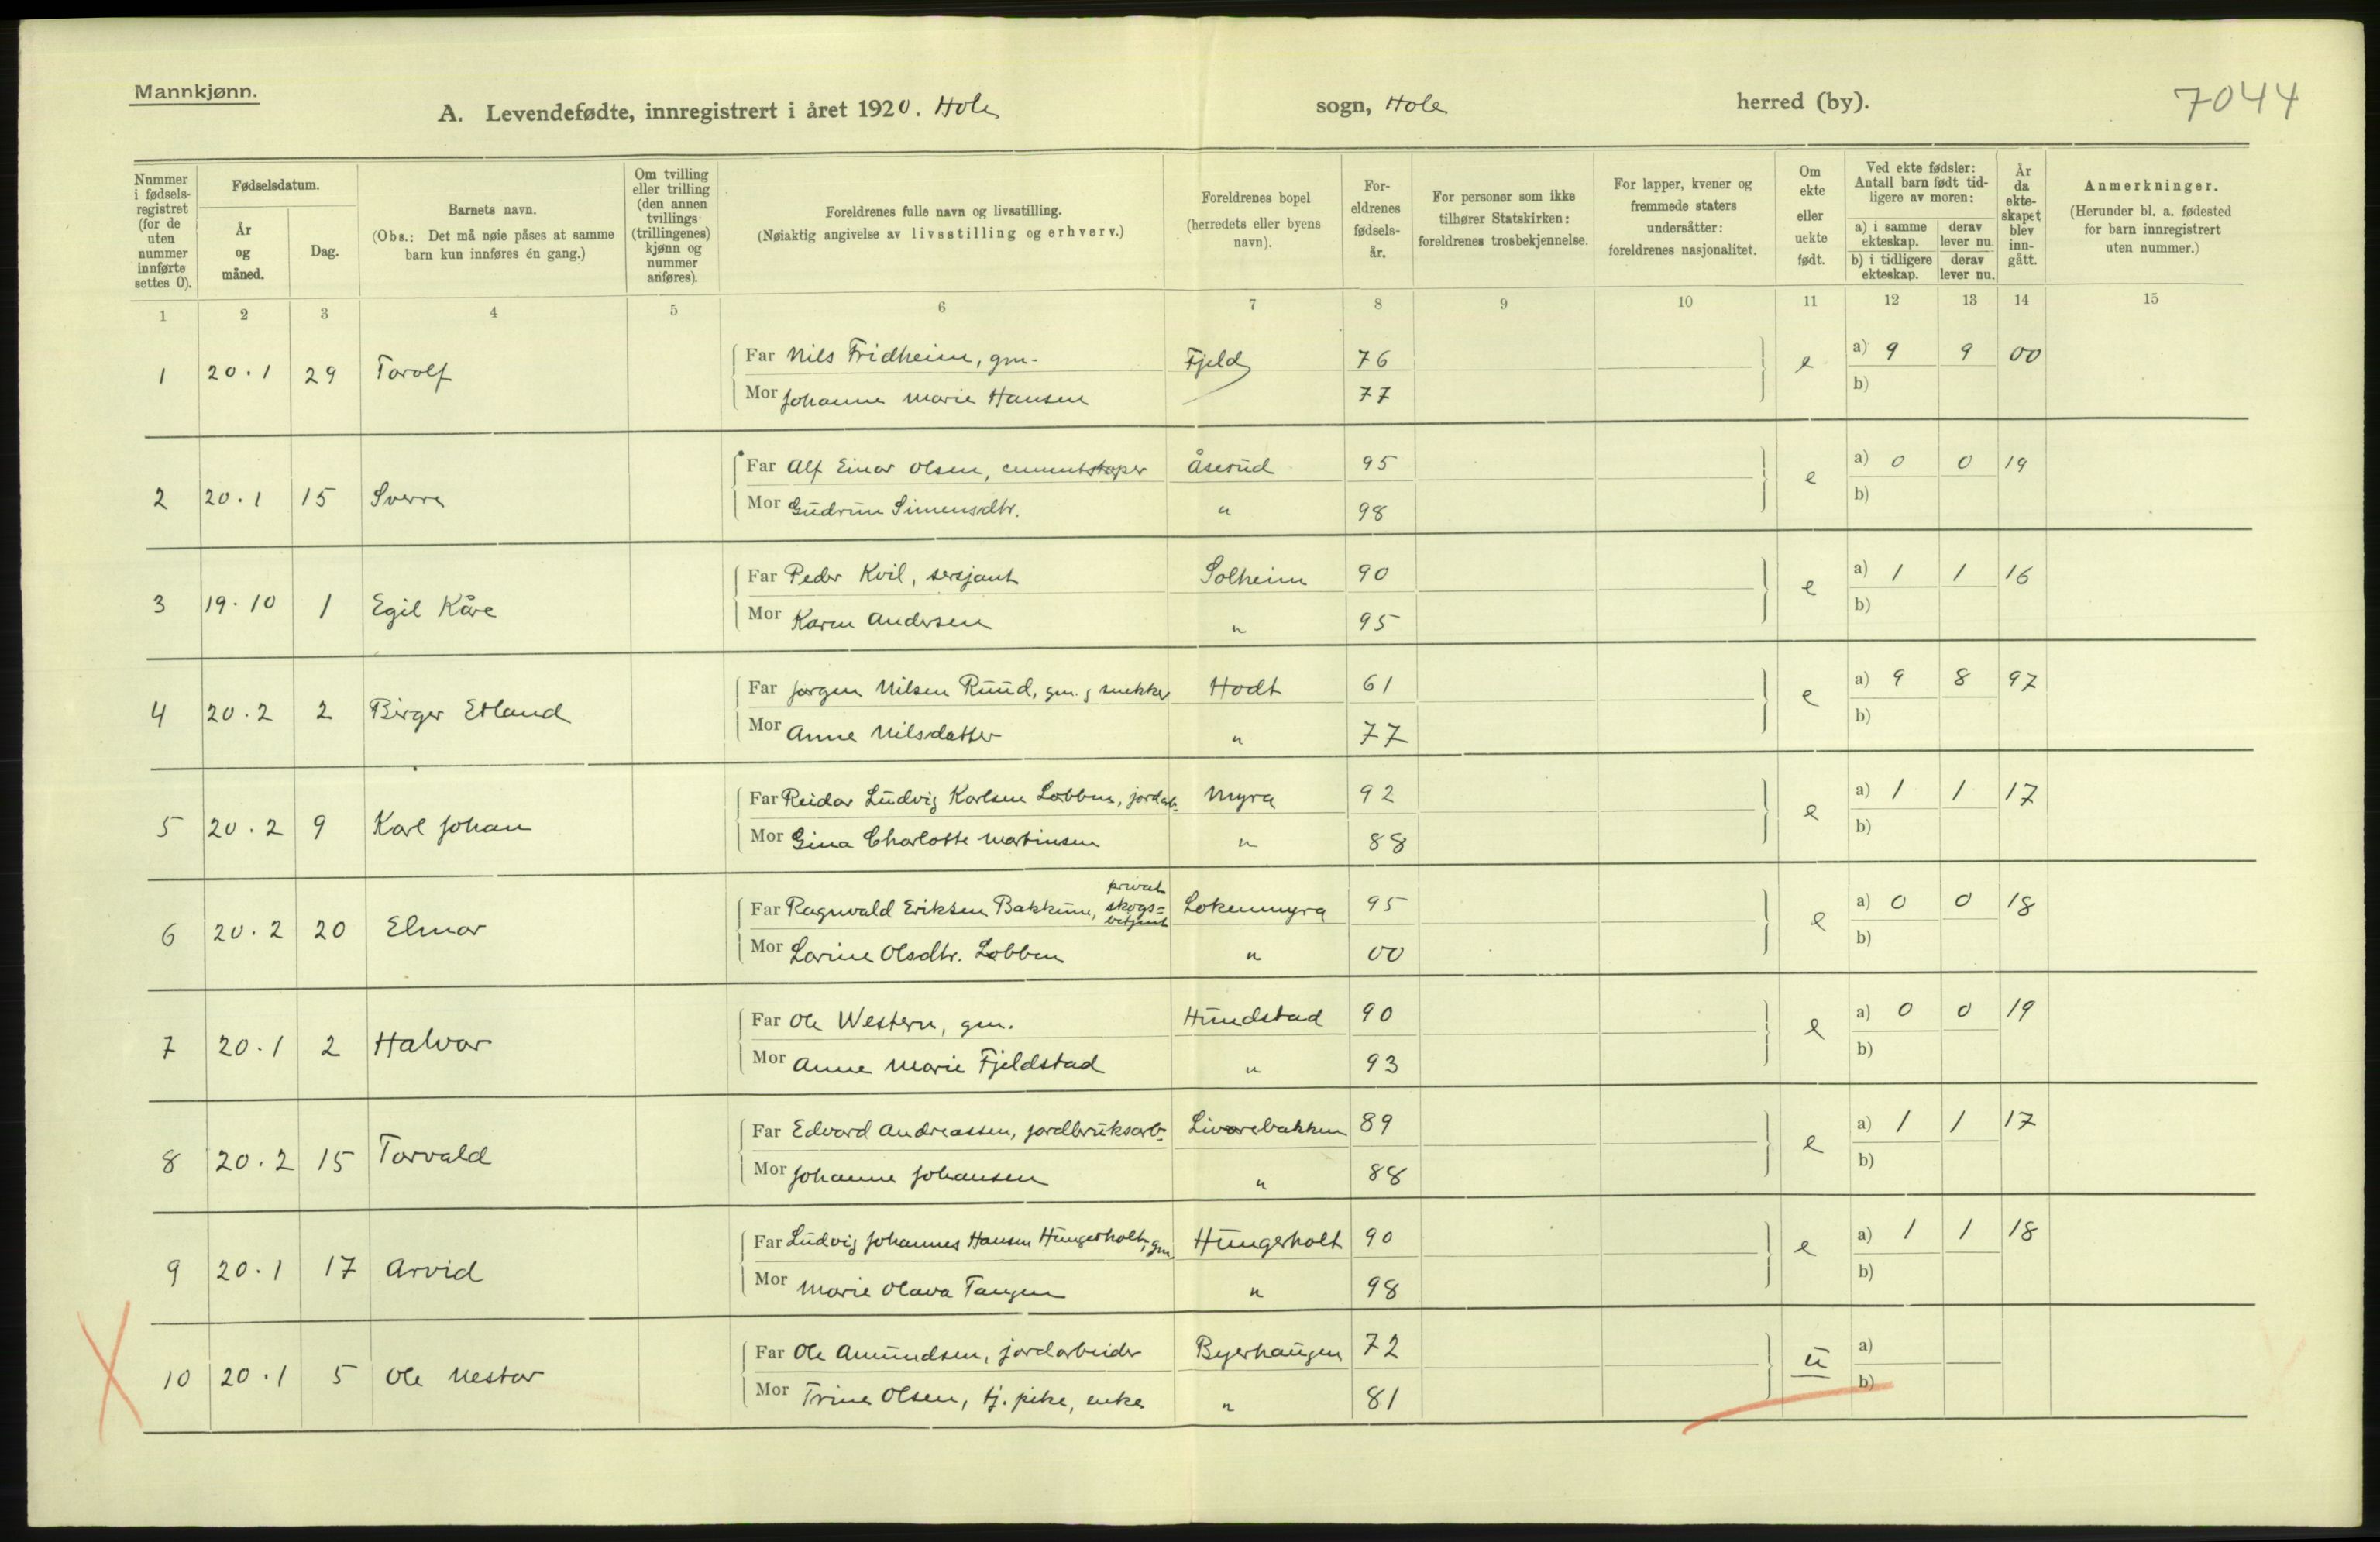 Mannkjønn.
7044
A. Levendefødte, innregistrert i året 1920. Hole sogn, Hole herred (by).
Nummer i fødsels-registret (for de uten nummer innførte settes 0).
Fødselsdatum.
År og måned.
Dag.
Barnets navn.
(Obs.: Det må nøie påses at samme barn kun innføres én gang.)
Om tvilling eller trilling (den annen tvillings (trillingenes) kjønn og nummer anføres).
Foreldrenes fulle navn og livsstilling.
(Nøiaktig angivelse av livsstilling og erhverv.)
Foreldrenes bopel
(herredets eller byens navn).
For-eldrenes fødsels-år.
For personer som ikke tilhører Statskirken: foreldrenes trosbekjennelse.
For lapper, kvener og fremmede staters undersåtter: foreldrenes nasjonalitet.
Om ekte eller uekte født.
Ved ekte fødsler: Antall barn født tid-ligere av moren:
a) i samme ekteskap. derav lever nu.
b) i tidligere ekteskap. derav lever nu.
År da ekte-skapet blev inn-gått.
Anmerkninger.
(Herunder bl. a. fødested for barn innregistrert uten nummer.)
1 2 3 4 5 6 7 8 9 10 11 12 13 14 15
1 20.1 29 Torolf
Far Nils Fridheim, gm. Fjeld 76 e a) 9 9 00
Mor Johanne Marie Hansen 77 b)
2 20.1 15 Sverre
Far Alf Einar Olsen, cementstøper Åserud 95 e a) 0 0 19
Mor Gudrun Simensdtr. " 98 b)
3 19.10 1 Egil Kåre
Far Peder Kvil, sersjant Solheim 90 e a) 1 1 16
Mor Karen Andersen " 95 b)
4 20.2 2 Birger Etland
Far Jørgen Nilsen Ruud, gm. s snekker Hodt 61 e a) 9 8 97
Mor Anne Nilsdatter " 77 b)
5 20.2 9 Karl Johan
Far Reidar Ludvig Karlsen Løbben, jordarb. Myra 92 e a) 1 1 17
Mor Gina Charlotte Martinsen " 88 b)
6 20.2 20 Elmar
Far Ragnvald Eriksen Bakkum, privat skogs=betjent Løkenmyra 95 e a) 0 0 18
Mor Lovine Olsdtr. Løbben " 00 b)
7 20.1 2 Halvor
Far Ole Western, gm. Hundstad 90 e a) 0 0 19
Mor Anne Marie Fjeldstad " 93 b)
8 20.2 15 Torvald
Far Edvard Andreassen, jordbruksarb. Livorebakken 89 e a) 1 1 17
Mor Johanne Johansen " 88 b)
9 20.1 17 Arvid
Far Ludvig Johannes Hansen Hungerholt, gm. Hungerholt 90 e a) 1 1 18
Mor Marie Olava Tangen " 98 b)
10 20.1 5 Ole Nestor
Far Ole Amundsen, jordarbeider Byerhaugen 72 u a)
Mor Trine Olsen, tj. pike, enke " 81 b)